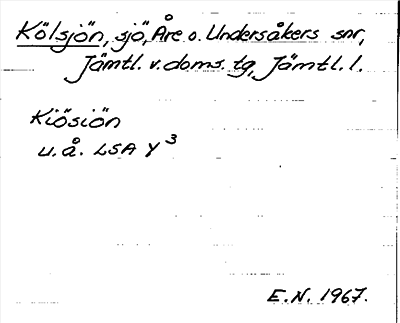 Kölsjön, sjö, Åre o. Undersåkers snr,
Jämtl. v. doms. tg, Jämtl. l.
Kiösiön
u. å. LSA Y 3
E. N. 1967.